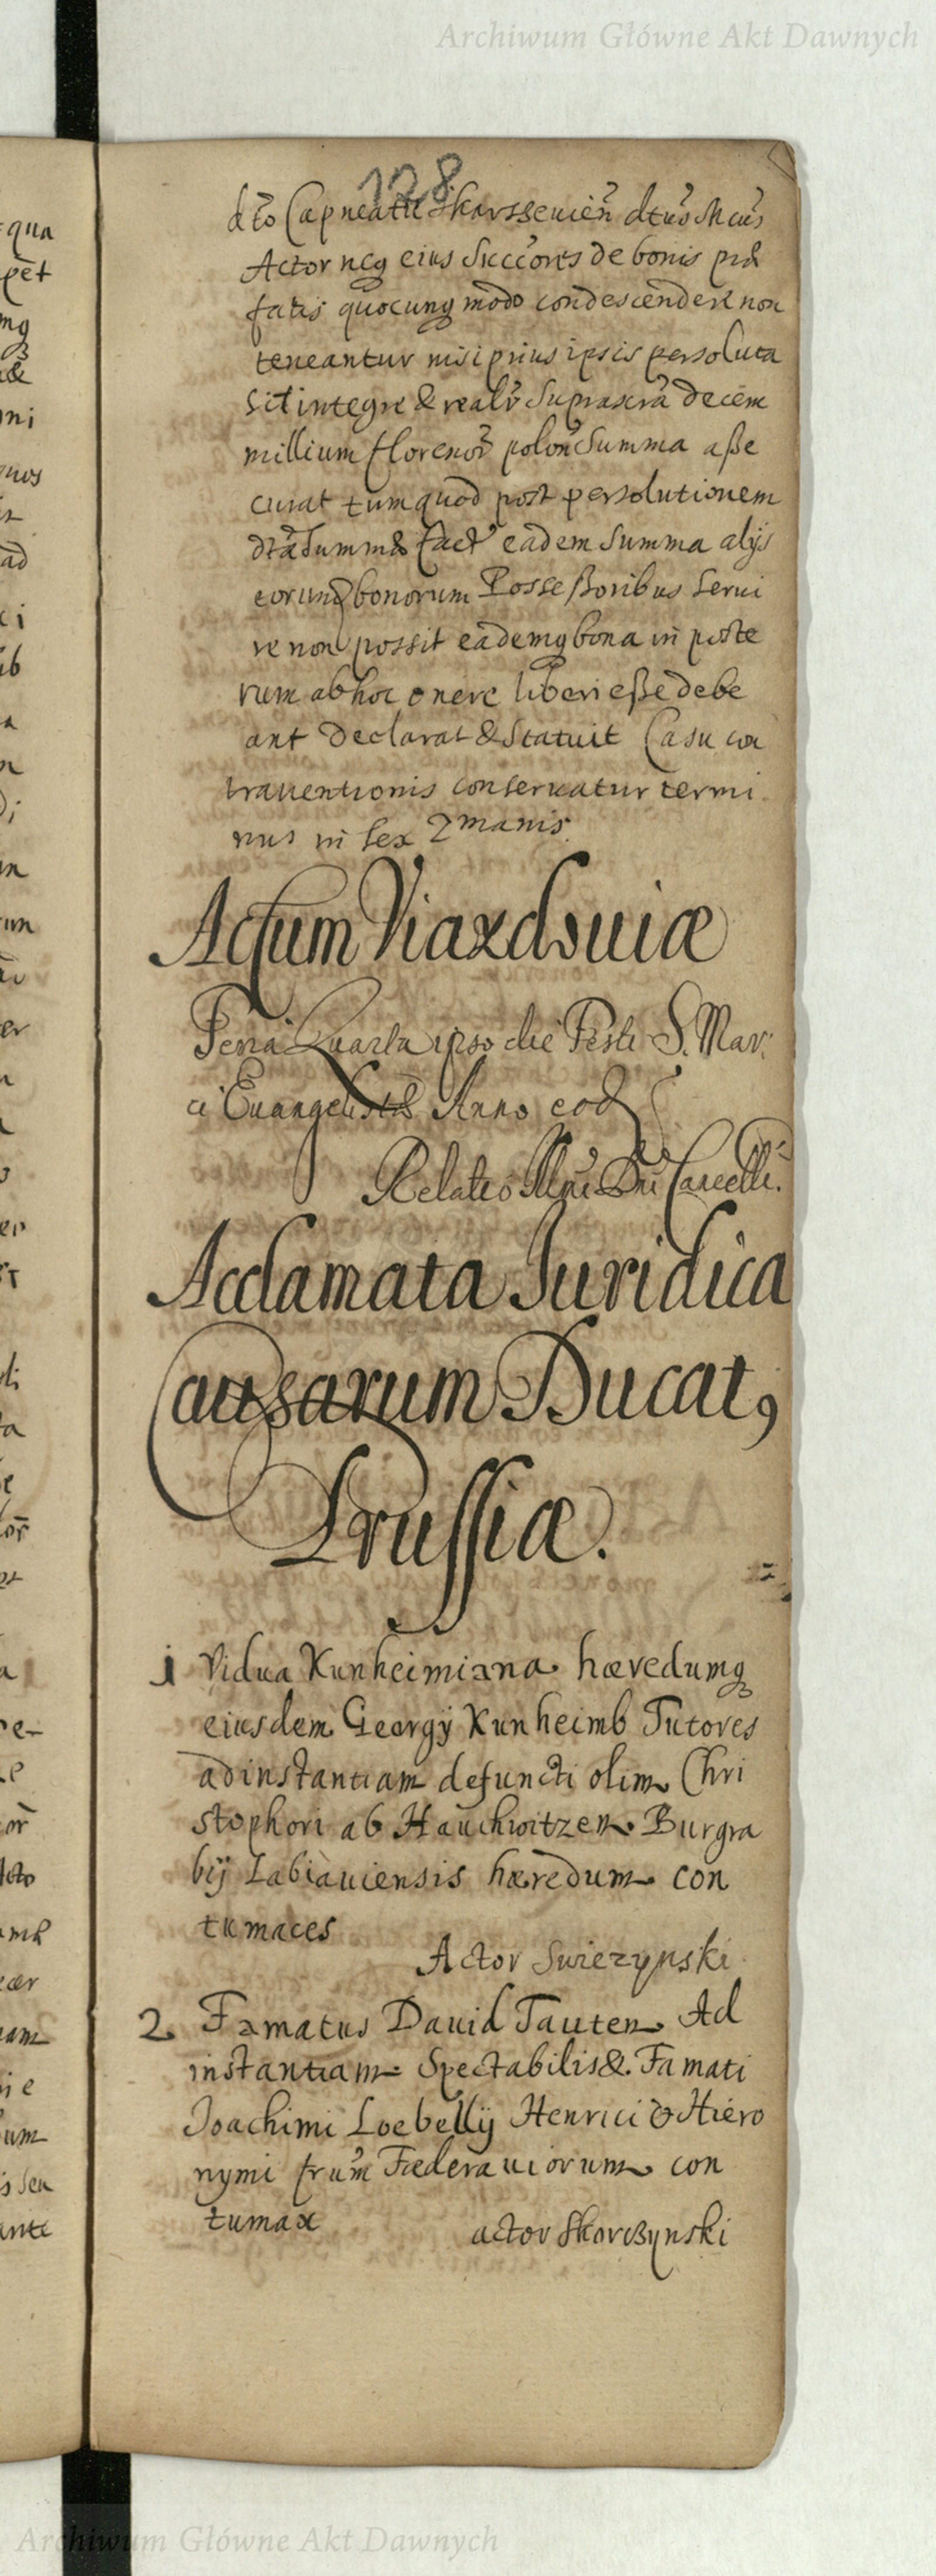 Archiwum Główne Akt Dawnych
128
dto Capneatu Skarsseuien dtus Mcus
Actor neq eius Succores de bonis præ
fatis quocunq modo condescendere non
teneantur nisi prius ipsis persoluta
sit integre & realr suprascra decem
millium florenor polon Summa aße
curat tum quod post persolutionem
dtæ Summæ fact eadem Summa alijs
eorund bonorum Possessoribus Serui
re non possit eademq bona in poste
rum ab hoc onere liberi eße debe
ant declarat & Statuit Casu con
trauentionis conseruatur termi
nus in sex 2manis.
Actum Viazdouiæ
Feria Quarta ipso die Festi S. Mar:
ci Euangelistæ Anno eod
Relatio Illmi Dni Cancell:
Acclamata Juridica
Causarum Ducat9
Prussiæ.
1 Vidua Kunheimiana hæredumq
eiusdem Georgij Kunheimb Tutores
ad instantiam defuncti olim Chri
stophori ab Hauchwitzen Burgra
bij Labiauiensis hæredum con
tumaces
Actor Swierzynski
2 Famatus Dauid Tauten Ad
instantiam Spectabilis & Famati
Joachimi Loebellij Henrici & Hiero
nymi frum Fæderauiorum con
tumax
actor Skarczynski
qua
pet
mq
æ
ni
quos
ad
ci
ub
um
er
r
ta
e
or
re-
or
am
ie
um
is seu
ante
Archiwum Główne Akt Dawnych